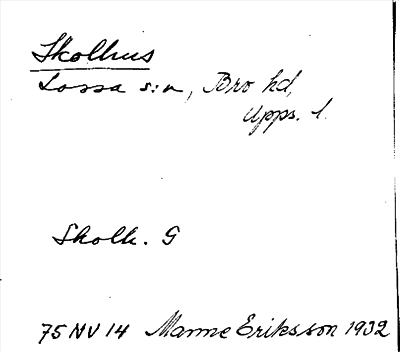 Skolhus
Lossa s:n, Bro hd,
Upps. l.
Skolh. G
75 NV 14 Manne Eriksson 1932